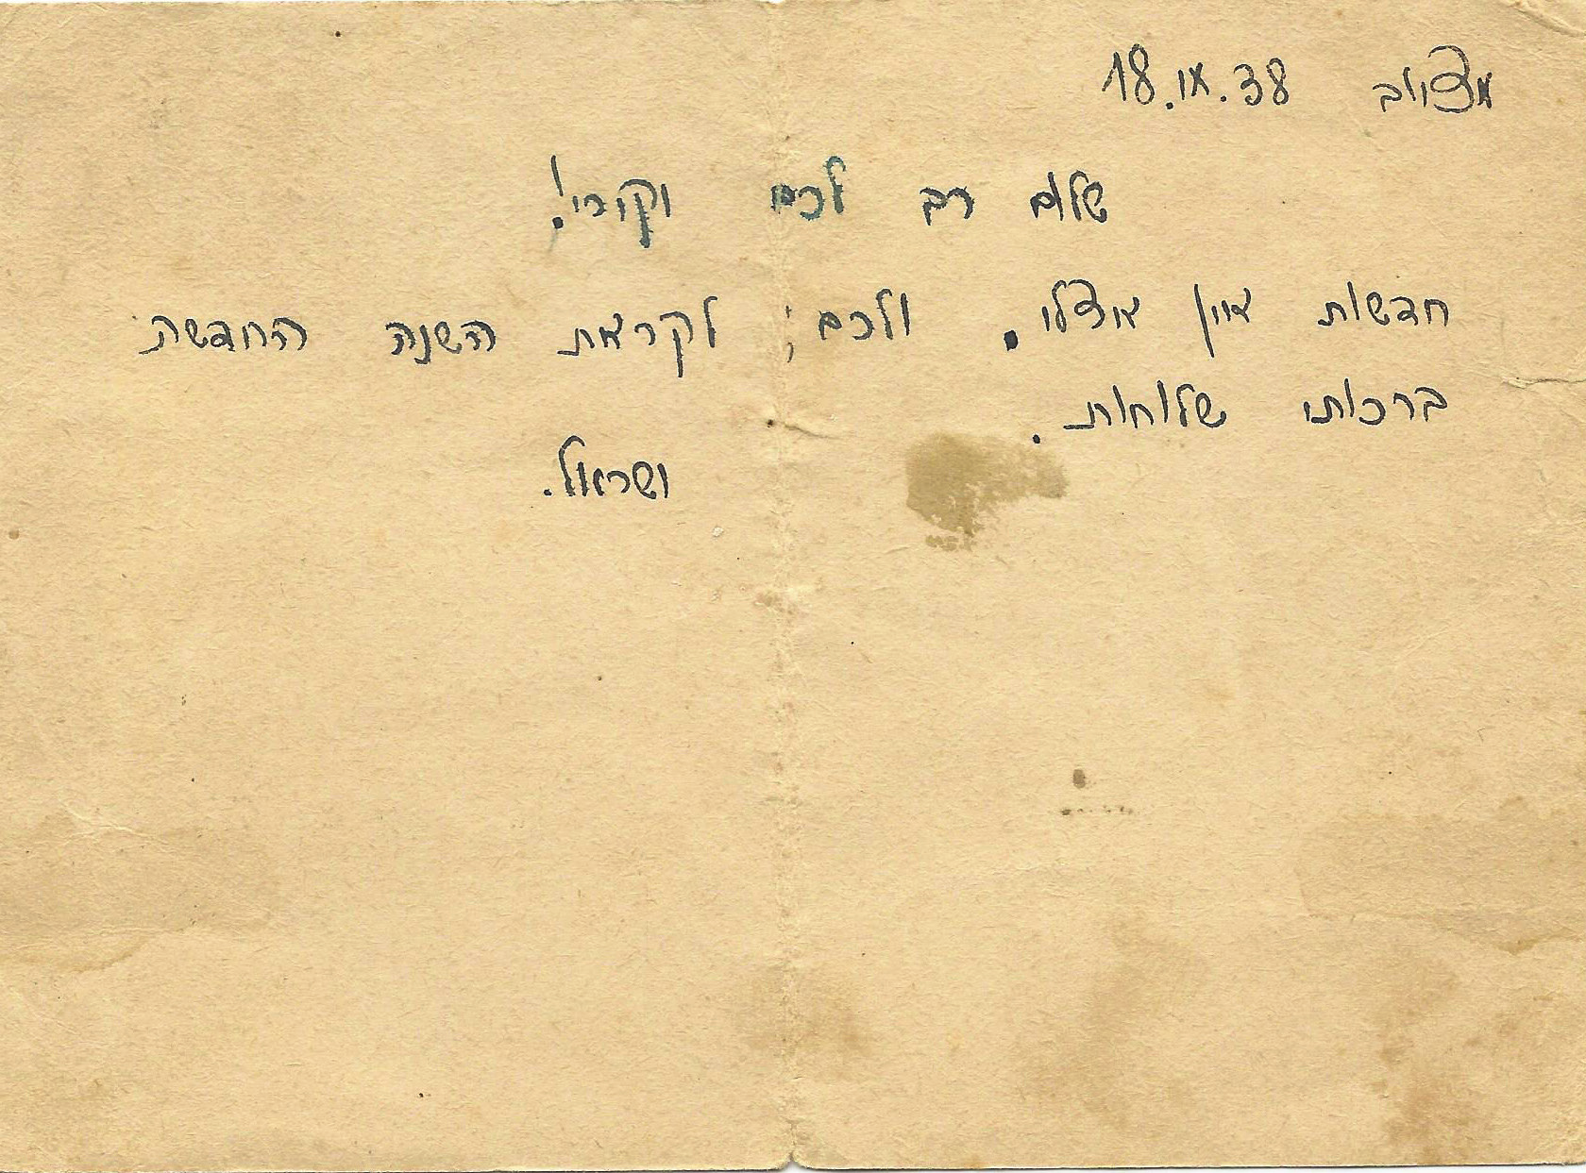 18.IX.38
שלום רב לכם יקירי!
חדשות אין אצלי. ולכם, לקראת השנה החדשה
ברכותי שלוחות.
ישראל.